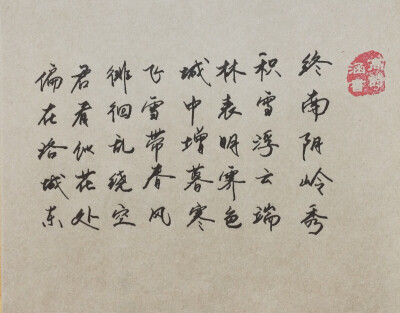 终南阴岭秀
积雪浮云端
林表明霁色
城中增暮寒
飞雪带春风
徘徊乱绕空
君看似花处
偏在洛城东